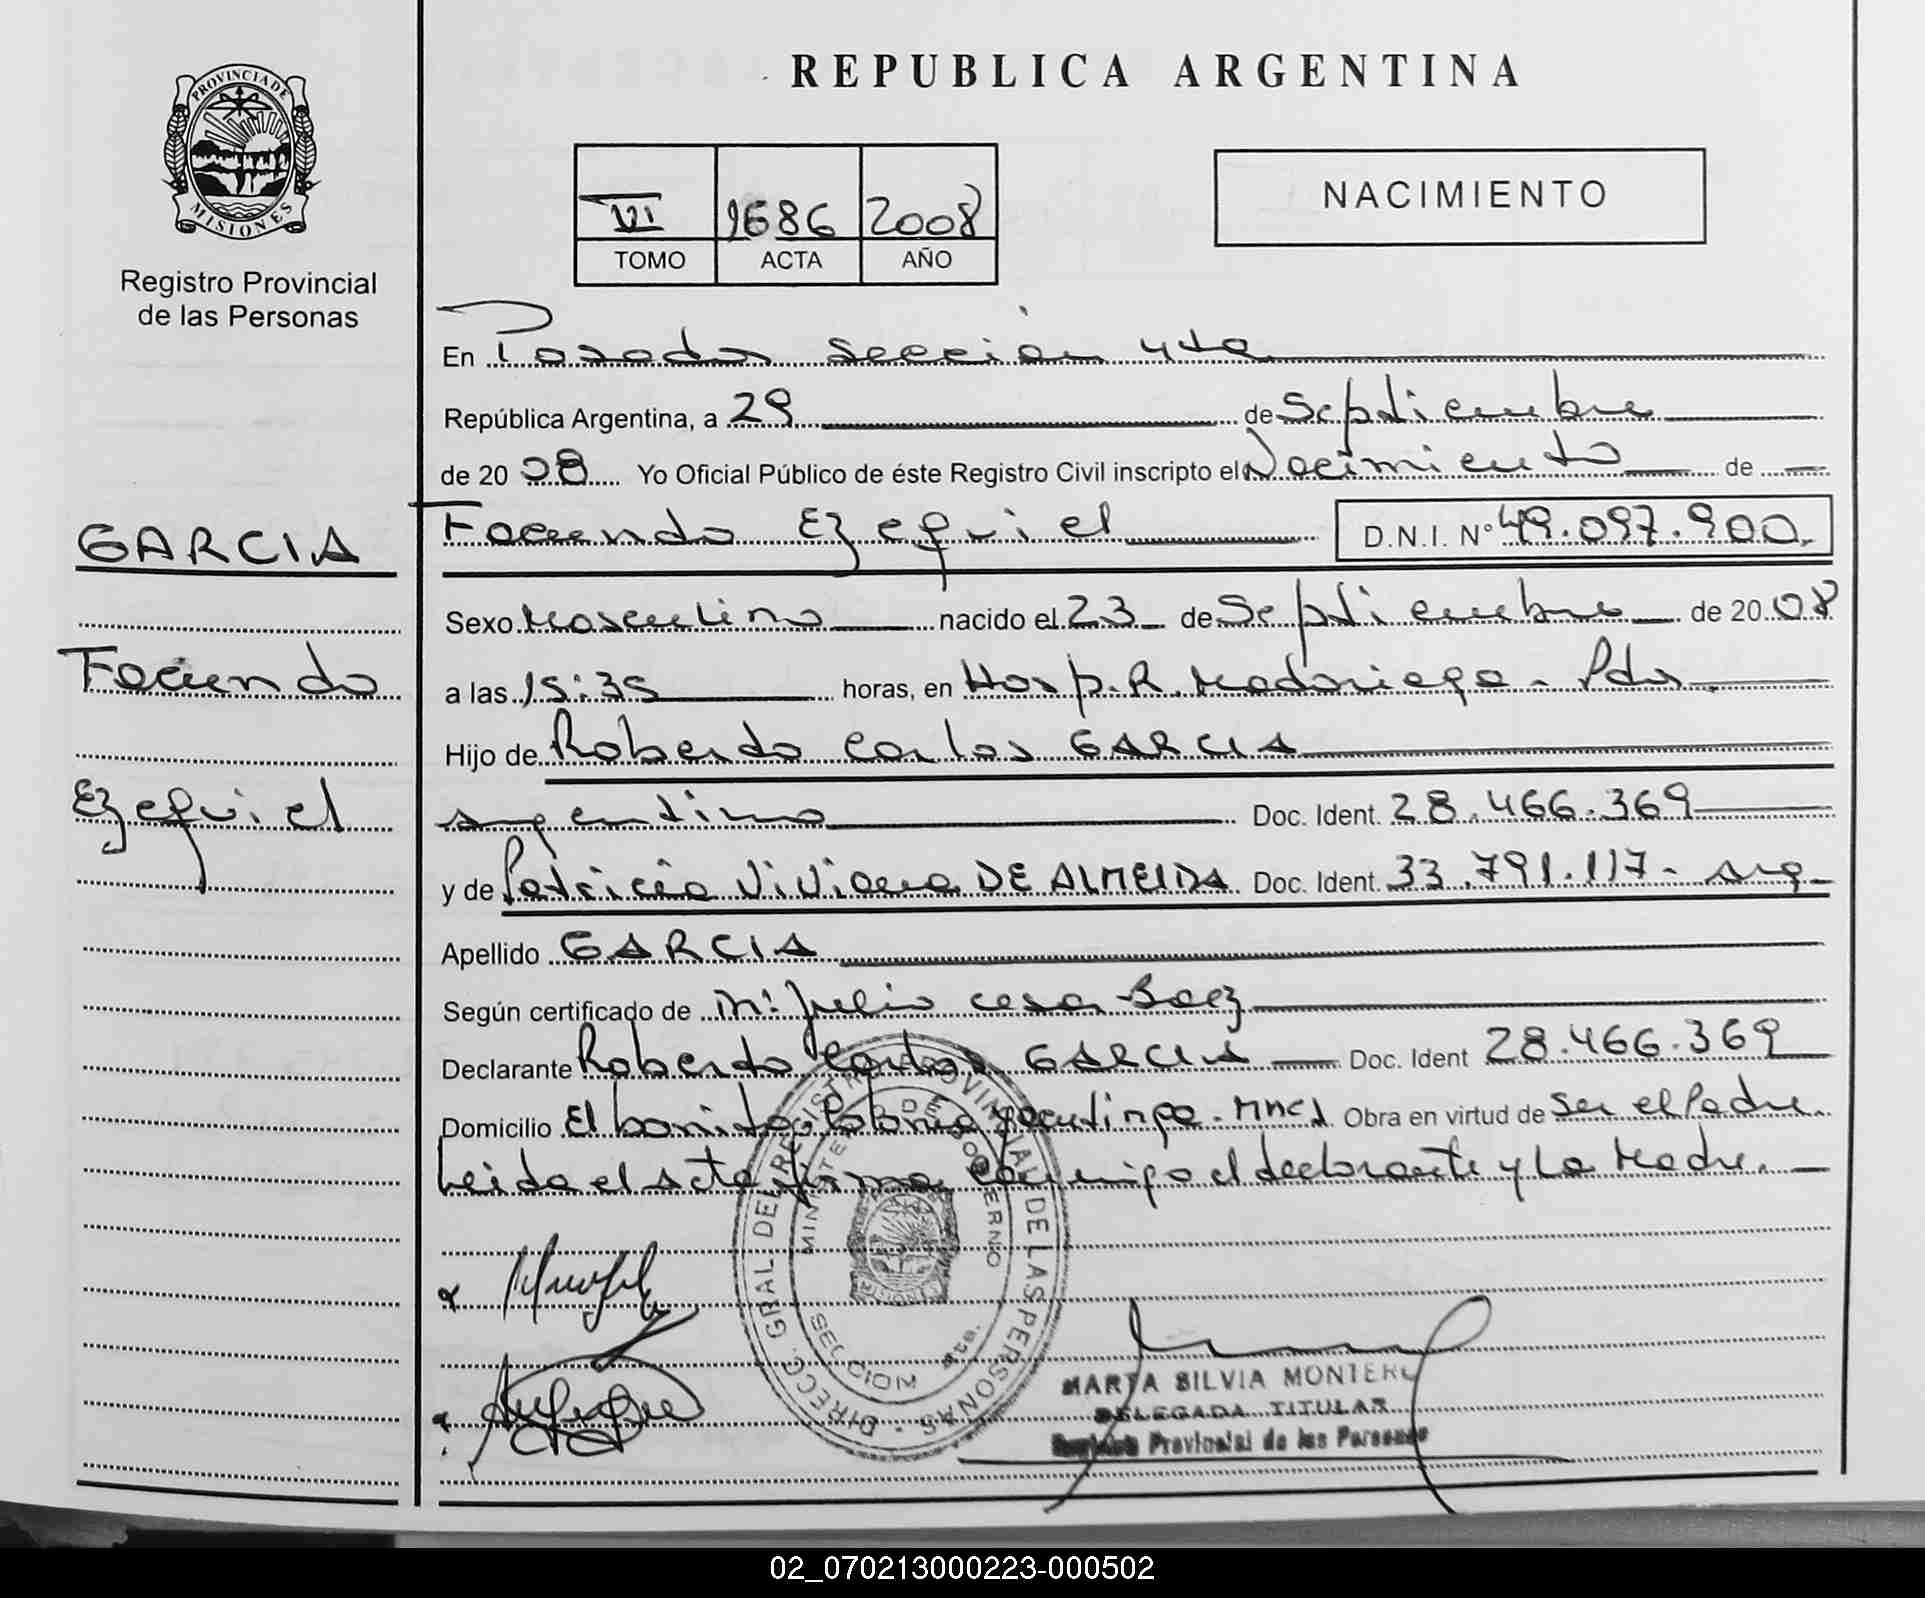 PROVINCIA DE
MISIONES
Registro Provincial
de las Personas
GARCIA
Facundo
Ezequiel
REPUBLICA ARGENTINA
VI 1686 2008
TOMO ACTA AÑO
NACIMIENTO
En Posadas sección 4ta
República Argentina, a 29 de Septiembre
de 2008 Yo Oficial Público de éste Registro Civil inscripto el Nacimiento de
Facundo Ezequiel D.N.I. N° 49.097.900.
Sexo Masculino nacido el 23 de Septiembre de 2008
a las 15:35 horas, en Hosp. R. Madariaga - Pdas.
Hijo de Roberto Carlos GARCIA
argentino Doc. Ident. 28.466.369
y de Patricia Viviana DE ALMEIDA Doc. Ident. 33.791.117 - arg.
Apellido GARCIA
Según certificado de Julio cesar Baez
Declarante Roberto Carlos GARCIA Doc. Ident 28.466.369
Domicilio El bonito, Colonia yacutinga - Mnes Obra en virtud de ser el Padre.
Leida el acta firma conmigo el declarante y la Madre.
DIRECC. GRAL DEL REGISTRO PROVINCIAL DE LAS PERSONAS
MINISTERIO DE GOBIERNO
SECCION 4ta.
MARTA SILVIA MONTERO
DELEGADA TITULAR
Registro Provincial de las Personas
02_070213000223-000502